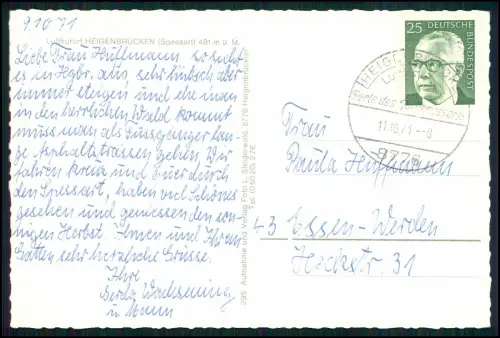 9.10.71
Luftkurort HEIGENBRÜCKEN (Spessart) 481 m ü. M.
Liebe Frau Hüffmann so sieht
es in Hgbr. aus, sehr hübsch aber
immer steigen und ehe man
in den herrlichen Wald kommt
muss man als Fussgänger lan-
ge Asphaltstrassen gehen. Wir
fahren kreuz und quer durch
den Spessart, haben viel Schönes
gesehen und geniessen den son-
nigen Herbst. Ihnen und Ihrem
Gatten sehr herzliche Grüsse.
Ihre
Gerda
u. Mann
295 Aufnahme und Verlag Foto 8776 Heigenbrücken
25 DEUTSCHE BUNDESPOST
HEIGENBRÜCKEN
Perle des
11.10.71-8
8778
Frau
Paula Hüffmann
43 Essen-Werden
Heckstr. 31